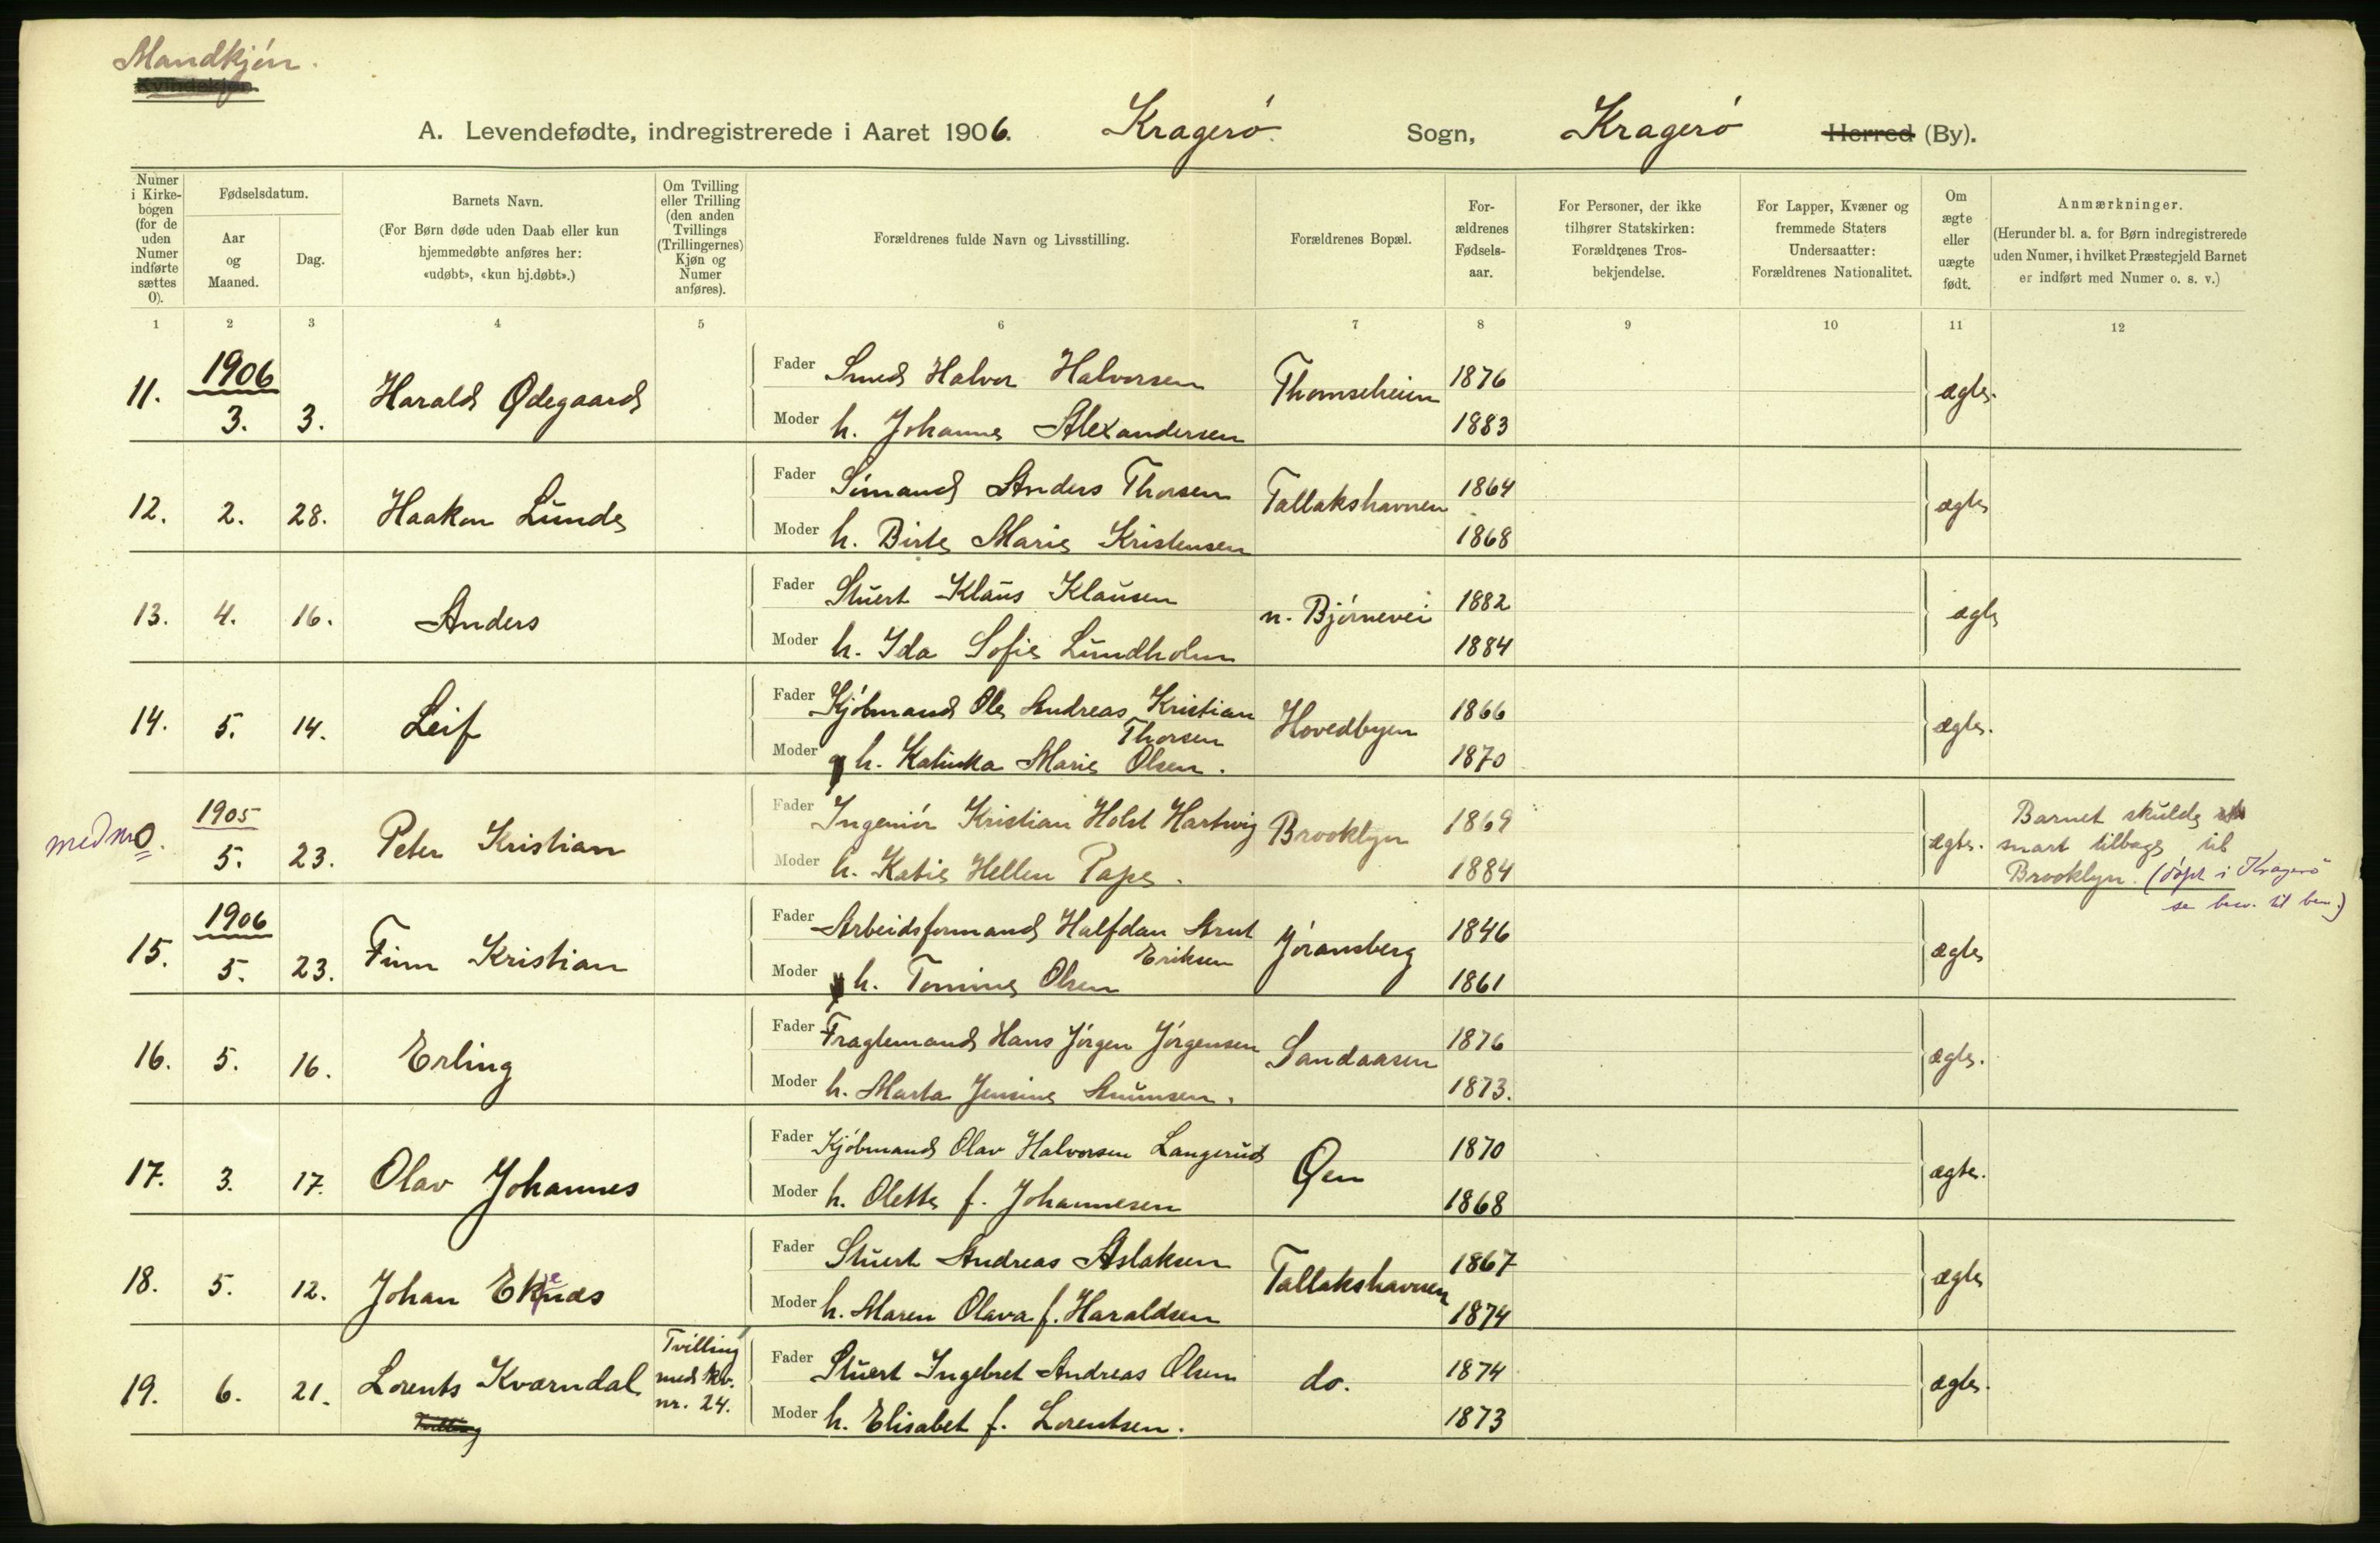 Mandkjön.
Kvindekjøn.
A. Levendefødte, indregistrerede i Aaret 1906. Kragerö Sogn, Kragerö Herred (By).
Numer i Kirkebogen (for de uden Numer indførte sættes 0).
Fødselsdatum.
Aar og Maaned.
Dag.
Barnets Navn.
(For Børn døde uden Daab eller kun hjemmedøbte anføres her: «udøbt», «kun hj.døbt».)
Om Tvilling eller Trilling (den anden Tvillings (Trillingernes) Kjøn og Numer anføres).
Forældrenes fulde Navn og Livsstilling.
Forældrenes Bopæl.
Forældrenes Fødselsaar.
For Personer, der ikke tilhører Statskirken: Forældrenes Trosbekjendelse.
For Lapper, Kvæner og fremmede Staters Undersaatter: Forældrenes Nationalitet.
Om ægte eller uægte født.
Anmærkninger.
(Herunder bl. a. for Børn indregistrerede uden Numer, i hvilket Præstegjeld Barnet er indført med Numer o. s. v.)
1 2 3 4 5 6 7 8 9 10 11 12
11. 1906 3. 3. Harald Ødegaard Fader Smed Halvor Halvorsen Thomseheien 1876 ægte.
Moder h. Johanne Alexandersen 1883
12. 2. 28. Haakon Lunde Fader Sömand Anders Thorsen Tallakshavnen 1864 ægte
Moder h. Birte Marie Kristensen 1868
13. 4. 16. Anders Fader Stuert Klaus Klausen n. Björnevei 1882 ægte
Moder h. Ida Sofie Lundholm 1884
14. 5. 14. Leif Fader Kjöbmand Ole Andreas Kristian Thorsen Hovedbyen 1866 ægte.
Moder h. Kalinka Marie Olsen. 1870
med nr 0. 1905 5. 23. Peter Kristian Fader Ingeniör Kristian Holst Hartwig Brooklyn 1869 ægte. Barnet skulde
Moder h. Katie Hellen Pape. 1884 snart tilbage til
Brooklyn. (döpt i Kragerö
15. 1906 5. 23. Finn Kristian Fader Arbeidsformand Halfdan Arnt Eriksen Jöransberg 1846 ægte
Moder h. Tomine Olsen 1861
16. 5. 16. Erling Fader Fragtemand Hans Jörgen Jörgensen Sandaasen 1876 ægte.
Moder h. Marta Jensine 1873.
17. 3. 17. Olav Johannes Fader Kjöbmand Olav Halvorsen Langerud Øen 1870 ægte.
Moder h. Olette f. Johannesen 1868
18. 5. 12. Johan Fader Stuert Andreas Aslaksen Tallakshavnen 1867 ægte
Moder h. Maren Olava f. Haraldsen 1874
19. 6. 21. Lorents Kværndal Tvilling med kv. nr. 24. Fader Stuert Ingebret Andreas Olsen do. 1874 ægte.
Tvilling Moder h. Elisabet f. Lorentsen. 1873